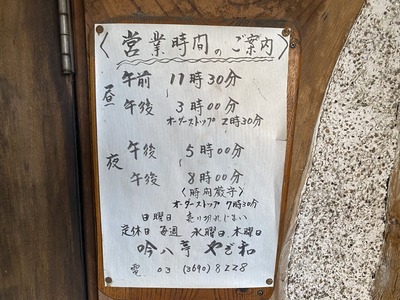 〈営業時間のご案内〉
昼 午前 11時30分
午後 3時00分
オーダーストップ 2時30分
夜 午後 5時00分
午後 8時00分
〈時間厳守〉
オーダーストップ 7時30分
日曜日 売り切れじまい
定休日 毎週 水曜日 木曜日
吟八亭 やざ和
電 03 (3690) 8228